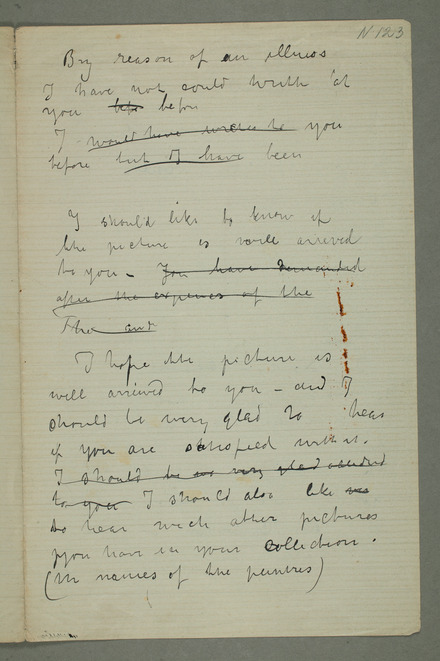 N 123
By reason of an illness
I have not could writh at
you before
I would have wrote to you
before but I have been
I should like to know if
the picture is well arrived
to you – You have demanded
after the expences of the
The and
I hope the picture is
well arrived to you – and I
should be very glad to hear
if you are satisfied with it.
I should be very glad
to you I should also like
to hear wich other pictures
you have in your collection.
(the names of the peintres)